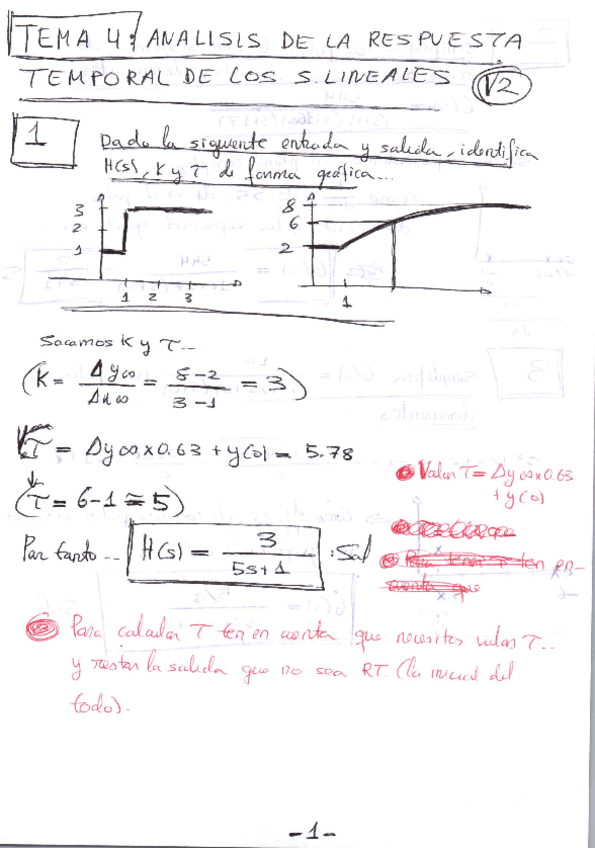 TEMA 4: ANALISIS DE LA RESPUESTA
TEMPORAL DE LOS S. LINEALES V2
1
Dado la siguiente entrada y salida, identifica
H(s), K y τ de forma gráfica...
3
2
1
1 2 3
8
6
2
1
Sacamos K y τ...
(K = Δy∞ / Δu∞ = 8-2 / 3-1 = 3)
τ = Δy∞ x 0.63 + y(0) = 5.78
(τ = 6-1 ≅ 5)
Valor τ = Δy∞ x 0.63
+ y(0)
Por tanto... H(s) = 3 / 5s+1 : Sol
Para calcular τ ten en cuenta que necesitas valor τ...
y restar la salida que no sea RT. (la inicial del
todo).
-1-